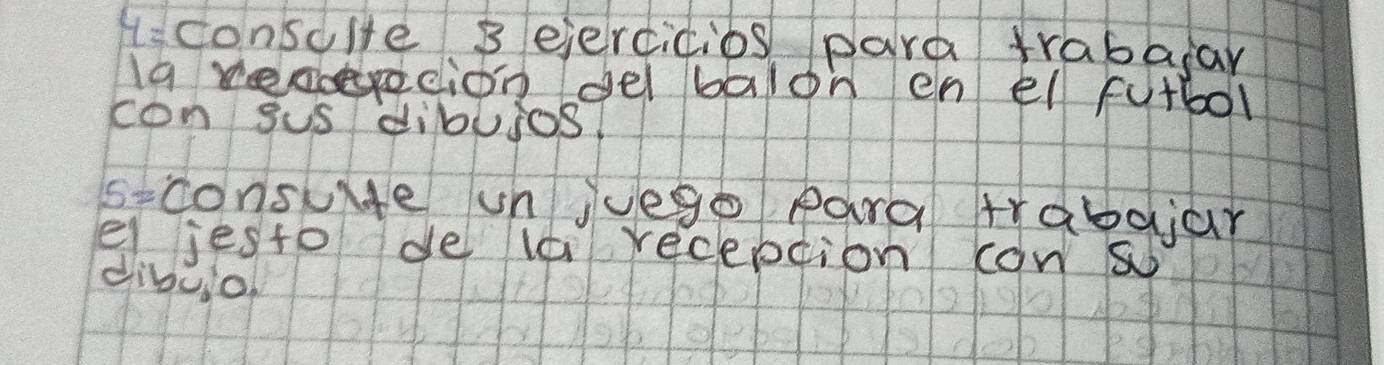 4=consulte 3 ejercicios para trabajar
la recepcion del balon en el futbol
con sus dibujos.
5=consulte un juego para trabajar
el jesto de la recepcion con su
dibujo.